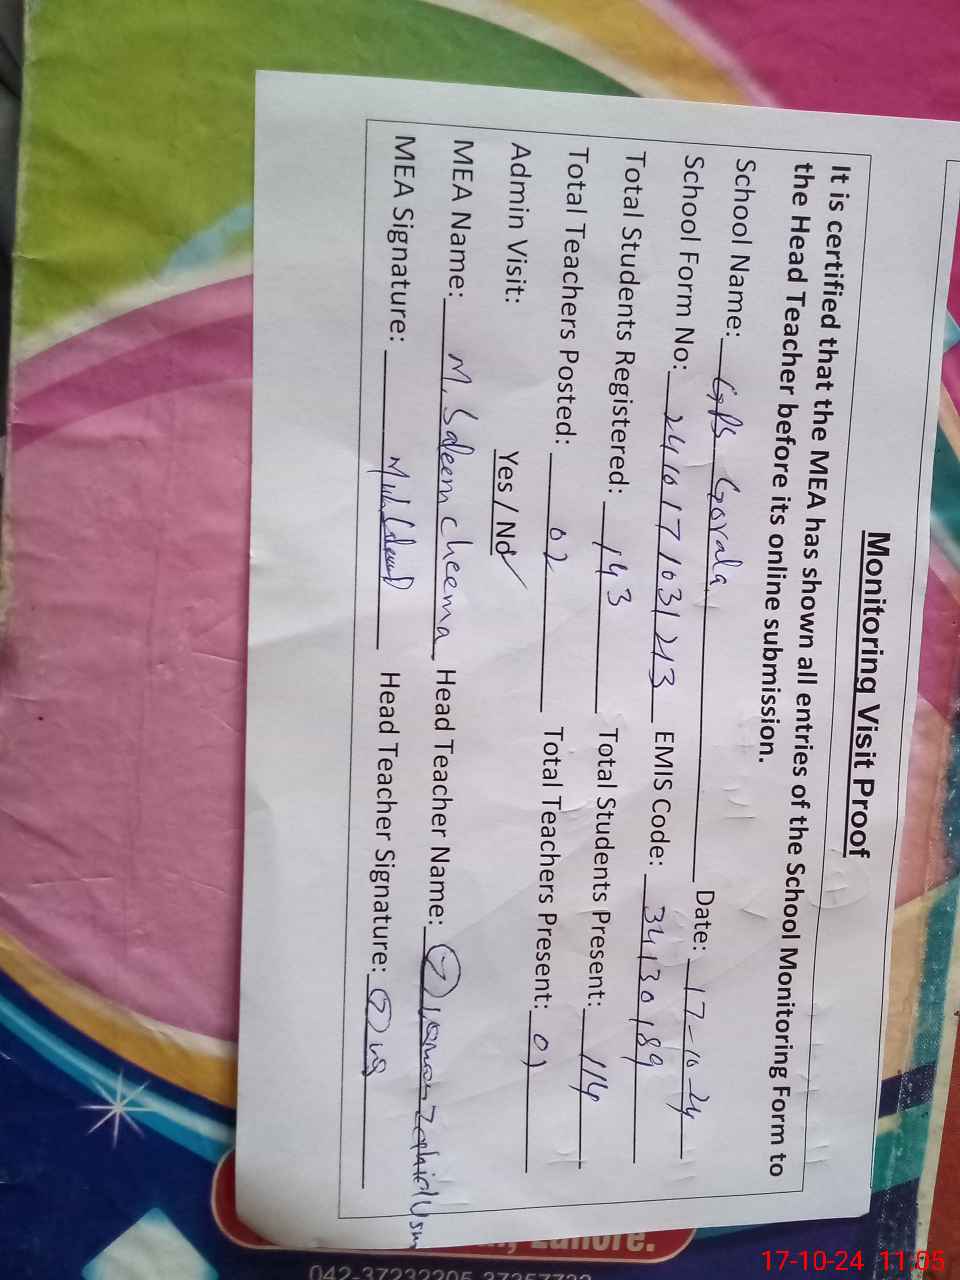 Monitoring Visit Proof
It is certified that the MEA has shown all entries of the School Monitoring Form to
the Head Teacher before its online submission.
School Name: GPS Gorala Date: 17-10-24
School Form No: 2410171031213 EMIS Code: 34130189
Total Students Registered: 143 Total Students Present: 114
Total Teachers Posted: 02 Total Teachers Present: 01
Admin Visit: Yes / No ✓
MEA Name: M. Saleem Cheema Head Teacher Name: Zahid
MEA Signature: Head Teacher Signature:
17-10-24 11:05